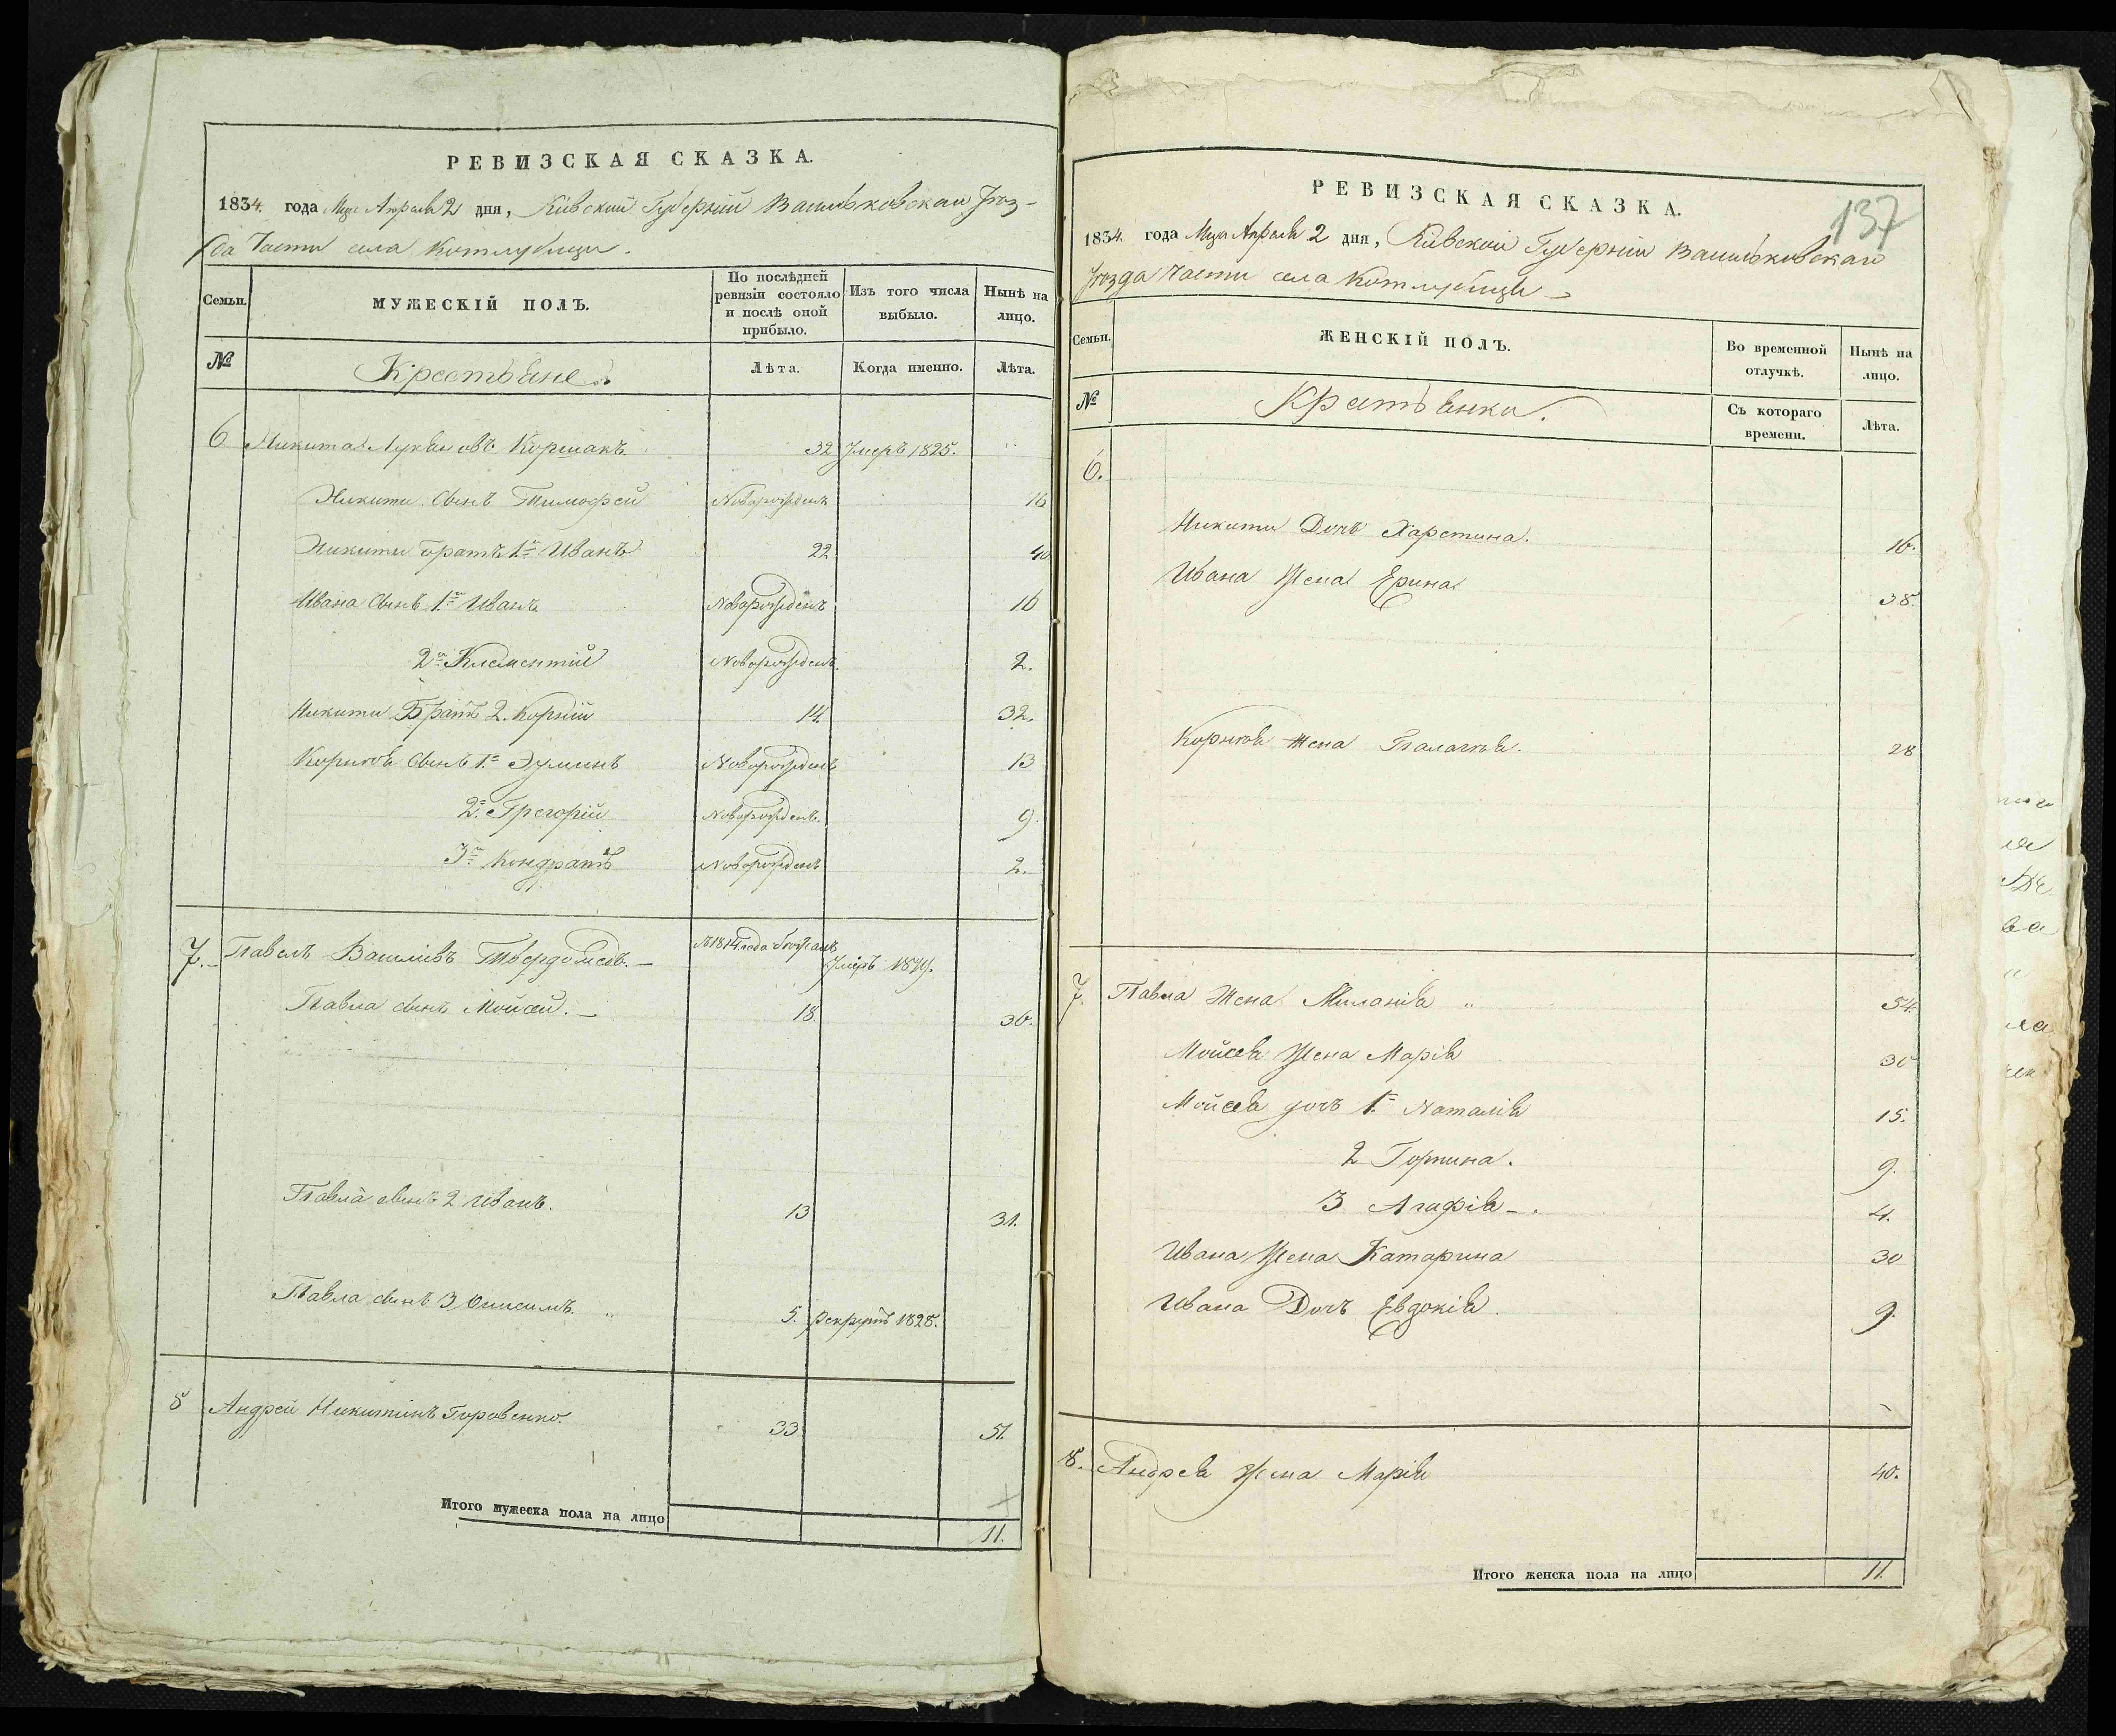 РЕВИЗСКАЯ СКАЗКА.
1834. года Мца Апреля 2 дня, Кіевской Губерніи Васильковскаго Уѣз-
да Части села Котлубицы.
Семьи.
МУЖЕСКІЙ ПОЛЪ.
По послѣдней ревизіи состояло и послѣ оной прибыло.
Изъ того числа выбыло.
Нынѣ на лицо.
№
Крестьяне
Лѣта.
Когда именно.
Лѣта.
6 Никита Лукьяновъ Коршакъ 32 Умеръ 1825.
Никити Сынъ Тимофей Новорожденъ 16
Никити Братъ 1й Иванъ 22 40
Ивана сынъ 1й Иванъ Новорожденъ 16
2й Клементій Новорожденъ. 2.
Никити Братъ 2. Корній 14. 32.
Корнѣя Сынъ 1й Новорожденъ 13
2й Грегорій Новорожден. 9.
3й Кондратъ Новорожденъ 2.
7. Павелъ Васильевъ Твердомедъ. 1814 года Умеръ 1819.
Павла сынъ Мойсей. 18. 36.
Павла сынъ 2 Иванъ. 13 31.
Павла сынъ 3 Онисимъ. 5. Рекрутъ 1828.
8 Андрей Никитинъ Горовенко. 33 51.
Итого мужеска пола на лицо 11.
137
РЕВИЗСКАЯ СКАЗКА.
1834. года Мца Апреля 2 дня, Кіевской Губерніи Васильковскаго
Уѣзда Части села Котлубицы
Семьи.
ЖЕНСКІЙ ПОЛЪ.
Во временной отлучкѣ.
Нынѣ на лицо.
№
Крестьянки.
Съ котораго времени.
Лѣта.
6.
Никити Дочь Харетина. 16.
Ивана Жена Ерина 38.
Корнѣя Жена Палагѣя. 28
7. Павла Жена Миланія 54.
Мойсея Жена Марія 36
Мойсея дочь 1. Наталія 15.
2 Горпина. 9.
3 Агафія. 4.
Ивана Жена Катарина 30
Ивана Дочь Евдокія. 9.
8. Андрея Жена Марія 40.
Итого женска пола на лицо 11.